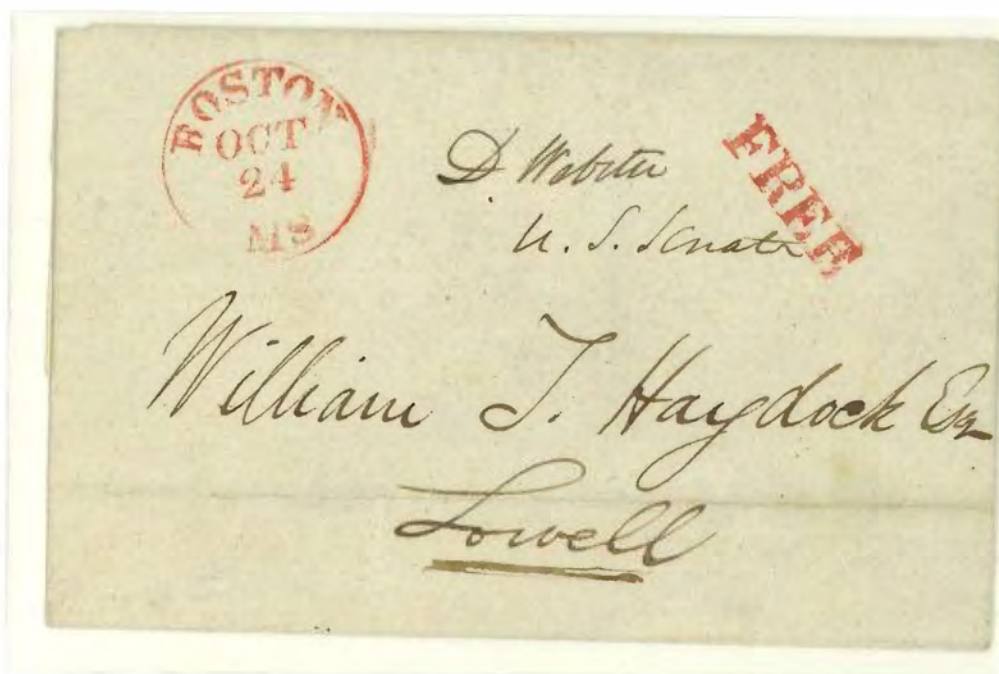 BOSTON
OCT
24
MS
FREE
D. Webster
U. S. Senate
William T. Haydock Esq
Lowell